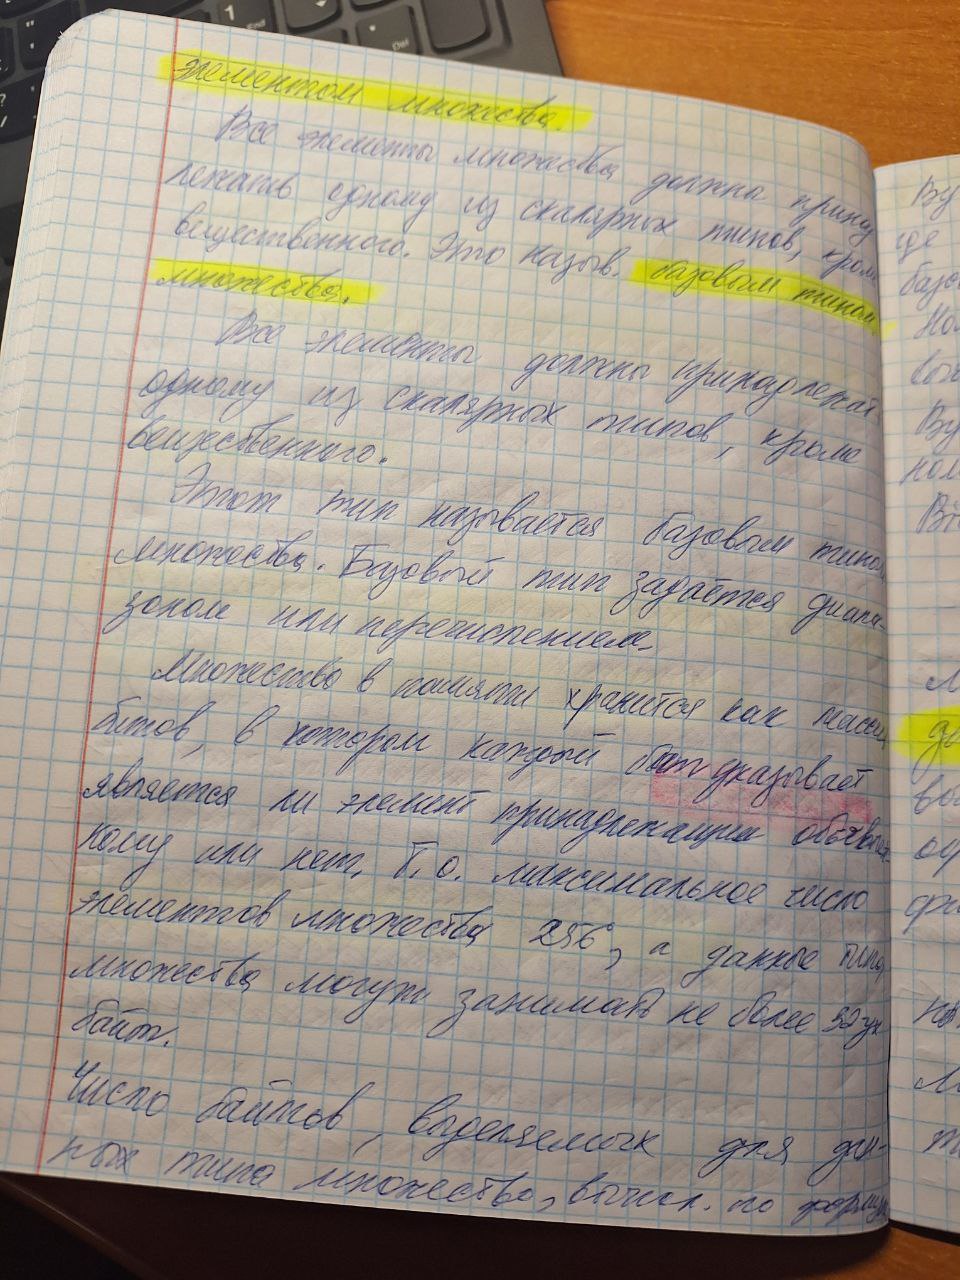 элементом множества.
Все элементы множества должны принад
лежать одному из скалярных типов, кроме
вещественного. Это назыв. базовым типом
множества.
Все элементы должны принадлежать
одному из скалярных типов, кроме
вещественного.
Этот тип называется базовым типом
множества. Базовый тип задаётся диапа-
зоном или перечислением.
Множество в памяти хранится как массив
битов, в котором каждый бит указывает
является ли элемент принадлежащим
ному или нет. Т.о. максимальное число
элементов множества 256, а данные типа
множества могут занимать не более 32
байт.
Число байтов, выделяемых для дан-
ных типа множество, вычисл. по формуле
Ву
где
базо
Ву
ном